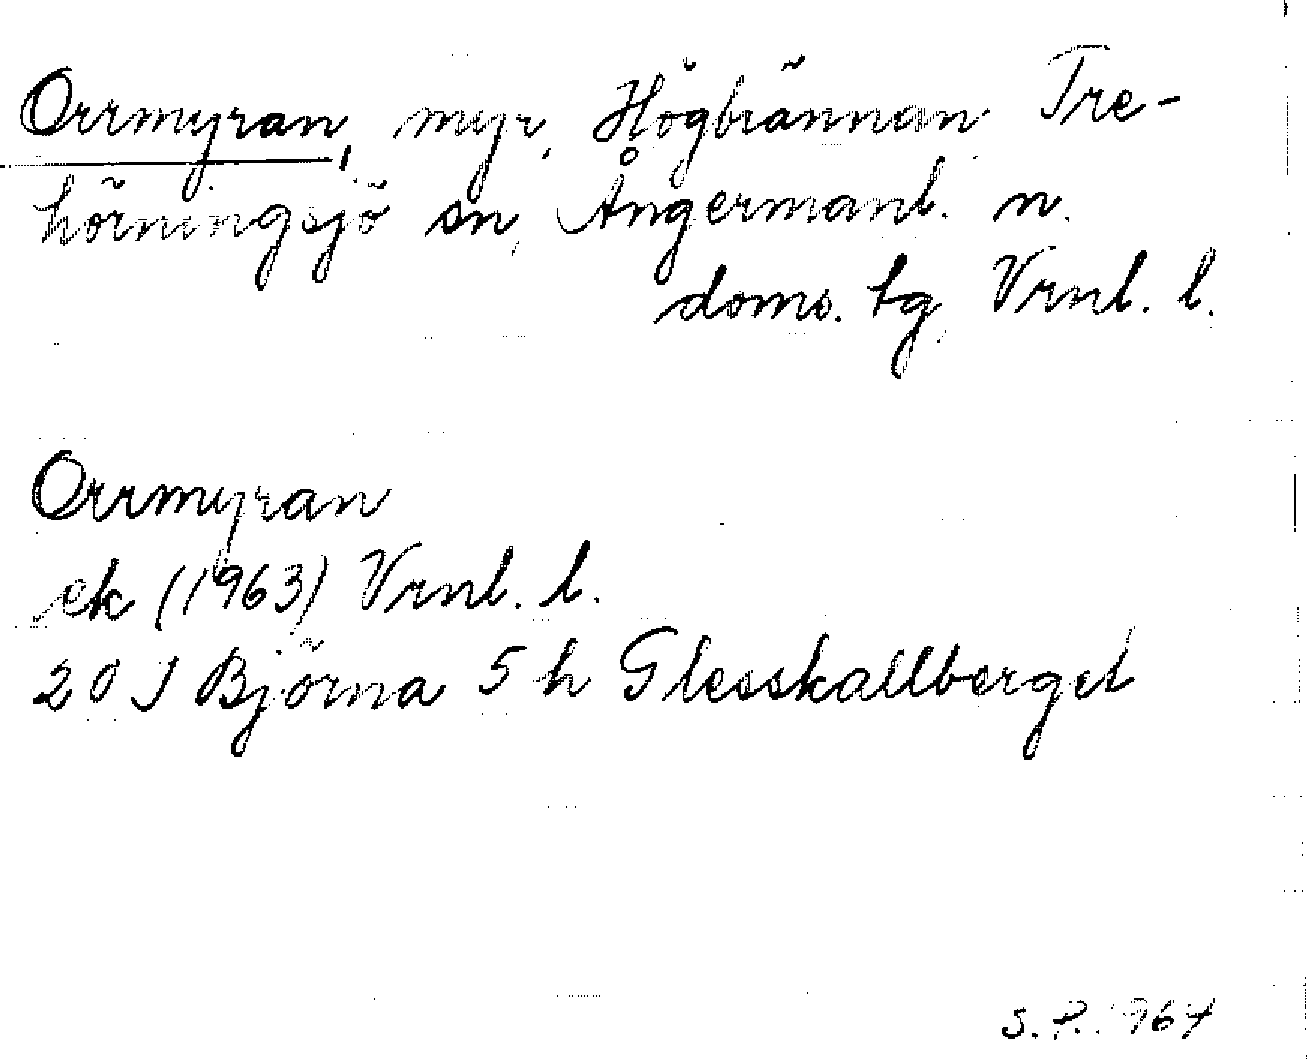 Orrmyran, myr, Högbrännan Tre-
hörningsjö sn, Ångermanl. n.
doms. tg, Vrnl. l.
Orrmyran
ek (1963) Vrnl. l.
20 J Björna 5 h Glesskallberget
S.P. 1964